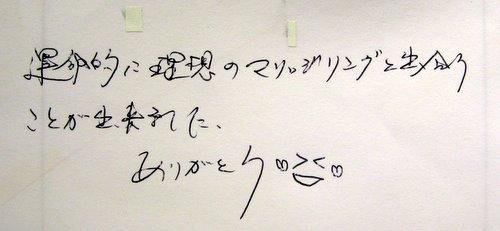 運命的に理想のマリッジリングと出会う
ことが出来ました、
ありがとう